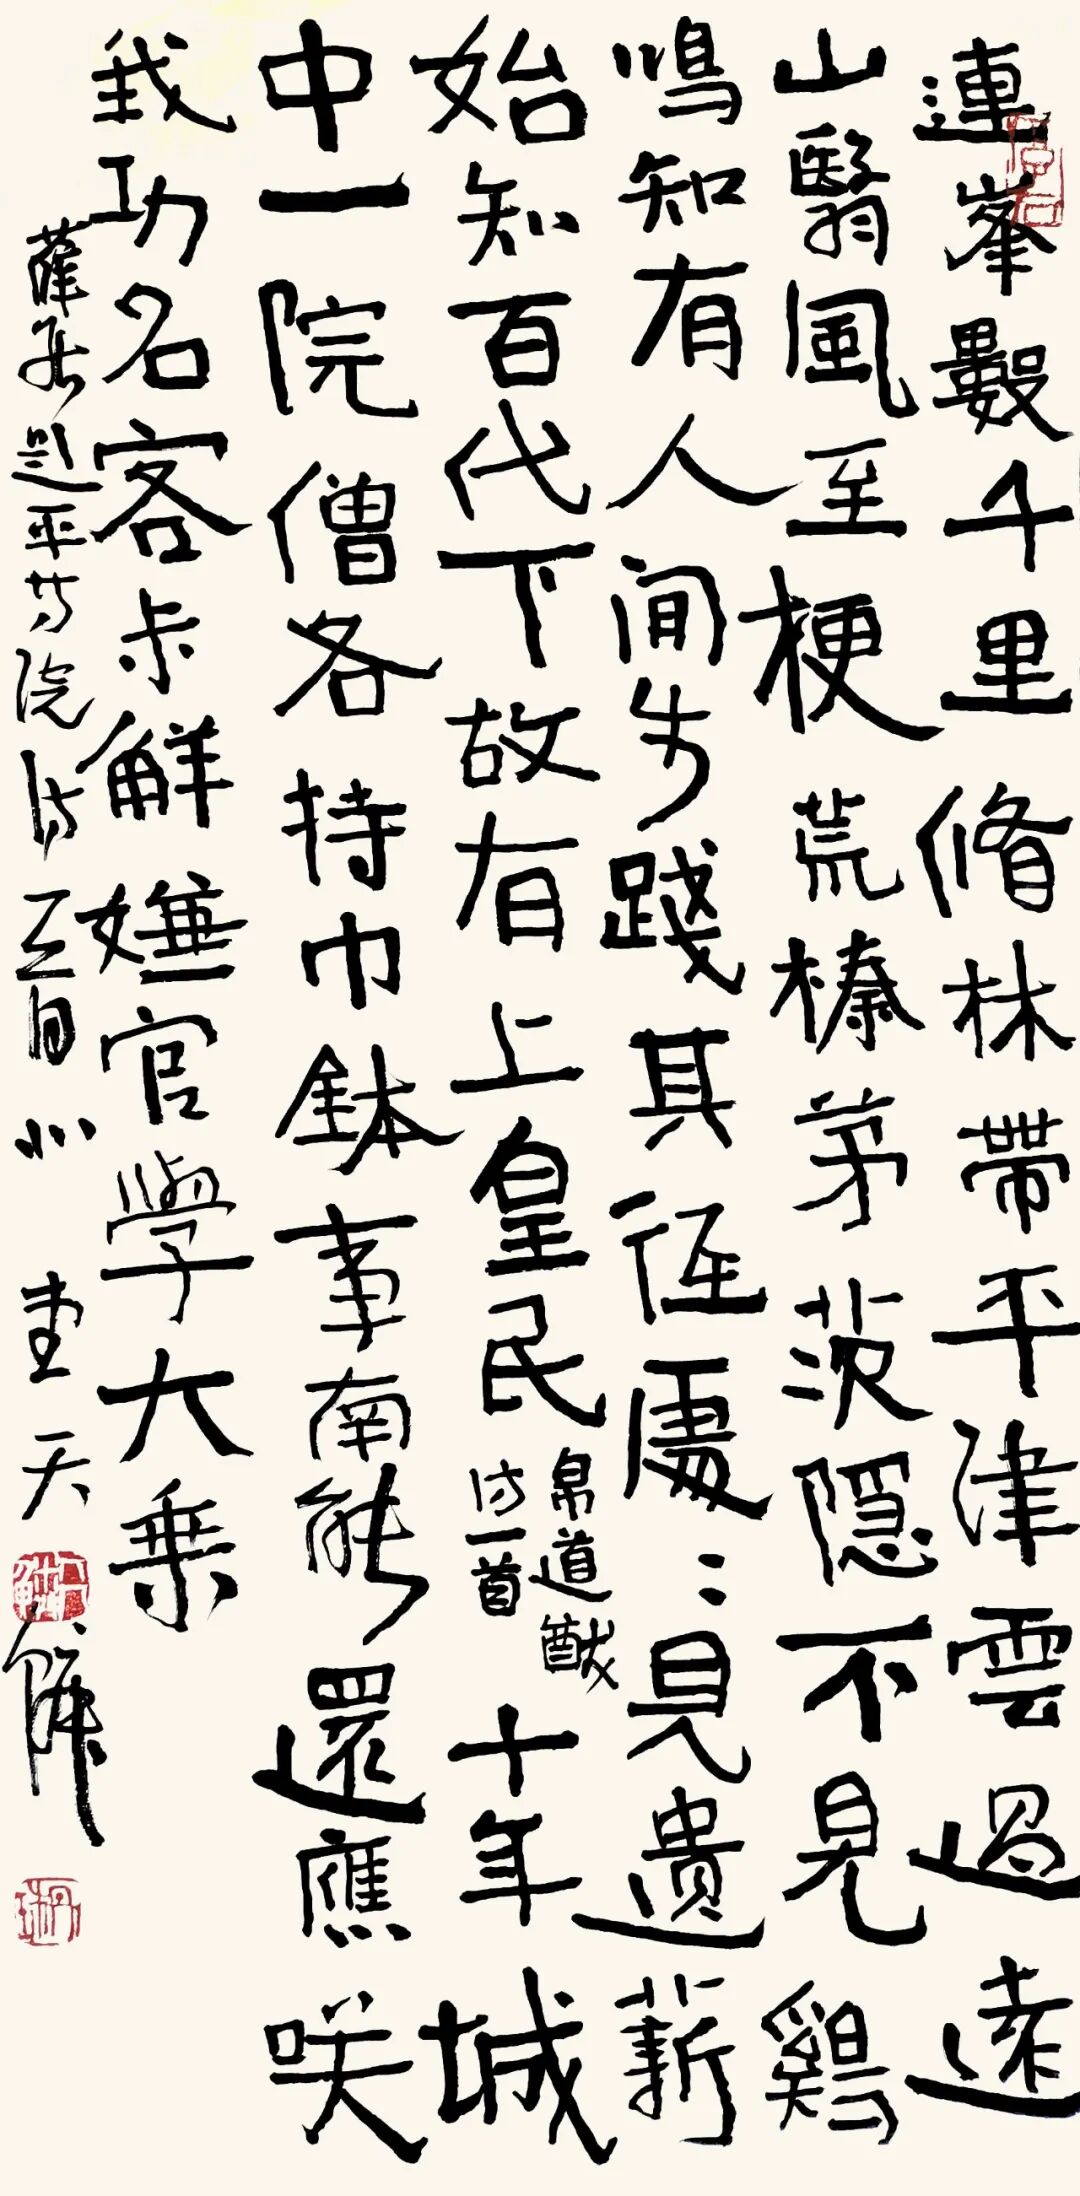 連峯數千里脩林帶平津雲過遠
山翳風至梗荒榛茅茨隱不見鷄
鳴知有人閒步踐其徑處〻見遺薪
始知百代下故有上皇民
帛道猷
詩一首
十年城
中一院僧各持巾鉢事南能還應咲
我功名客未解嫌官學大乗
薛居題平等院詩